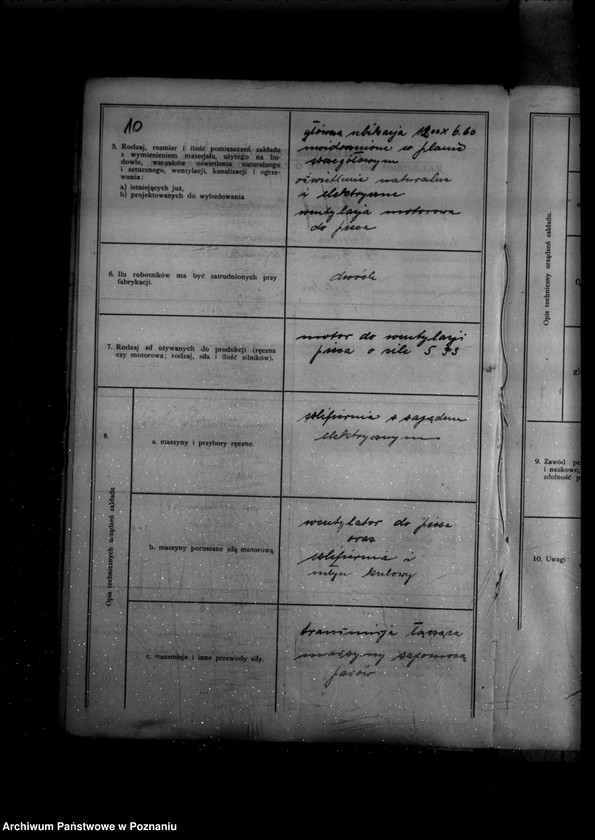 10
5. Rodzaj, rozmiar i ilość pomieszczeń zakładu
z wymienieniem materjału, użytego na bu-
dowie, warunków oświetlenia naturalnego
i sztucznego, wentylacji, kanalizacji i ogrze-
wania:
a) istniejących już,
b) projektowanych do wybudowania
główna ubikacja 1200 x 6.60
uwidocznione w planie
szczegółowym
oświetlenie naturalne
i elektryczne
wentylacja motorowa
do pieca
6. Ilu robotników ma być zatrudnionych przy
fabrykacji.
dwóch
7. Rodzaj sił używanych do produkcji (ręczna
czy motorowa; rodzaj, siła i ilość silników).
motor do wentylacji
pieca o sile 5
8.
Opis technicznych urządzeń zakładu
a. maszyny i przybory ręczne.
szlifiernia z zapędem
elektrycznym
b. maszyny poruszane siłą motorową
wentylator do pieca
oraz
szlifiernia i
młyn kulowy
c. transmisje i inne przewody siły.
transmisja łącząca
maszyny zapomocą
pasów
Opis techniczny urządzeń zakładu.
9. Zawód
i naukowe,
zdolność
10. Uwagi
Archiwum Państwowe w Poznaniu